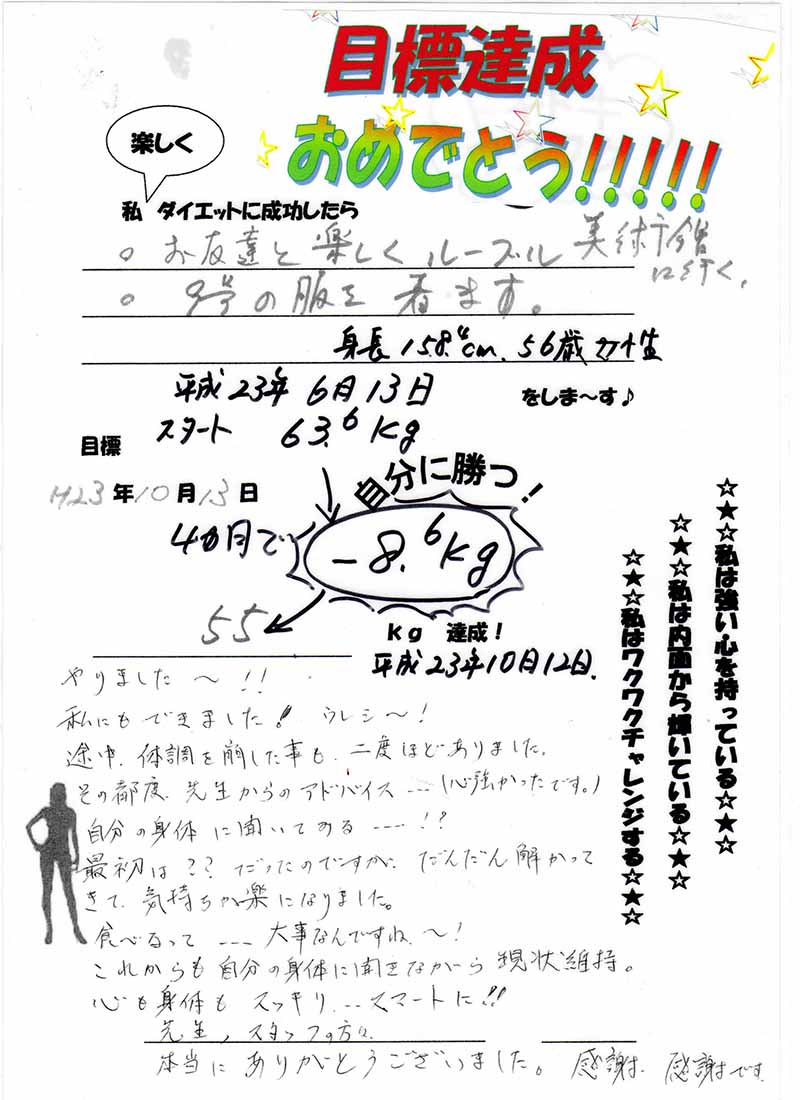 目標達成
おめでとう!!!!!
楽しく
私 ダイエットに成功したら
○ お友達と楽しくルーブル美術館に行く。
○ 9号の服を着ます。
身長158.4cm. 56歳 女性
平成23年6月13日
をしま〜す♪
スタート 63.6kg
目標
自分に勝つ!
H23年10月13日
4カ月で
-8.6kg
55
kg 達成!
平成23年10月12日.
☆★☆私は強い心を持っている☆★☆
☆★☆私は内面から輝いている☆★☆
☆★☆私はワクワクチャレンジする☆★☆
やりました〜!!
私にもできました! ウレシ〜!
途中、体調を崩した事も、二度ほどありました。
その都度、先生からのアドバイス---(心強かったです。)
自分の身体に聞いてみる----!?
最初は??だったのですが、だんだん解かって
きて、気持ちが楽になりました。
食べるって ---- 大事なんですね〜!
これからも自分の身体に聞きながら現状維持。
心も身体もスッキリ...スマートに!!
先生、スタッフの方々
本当にありがとうございました。感謝、感謝です